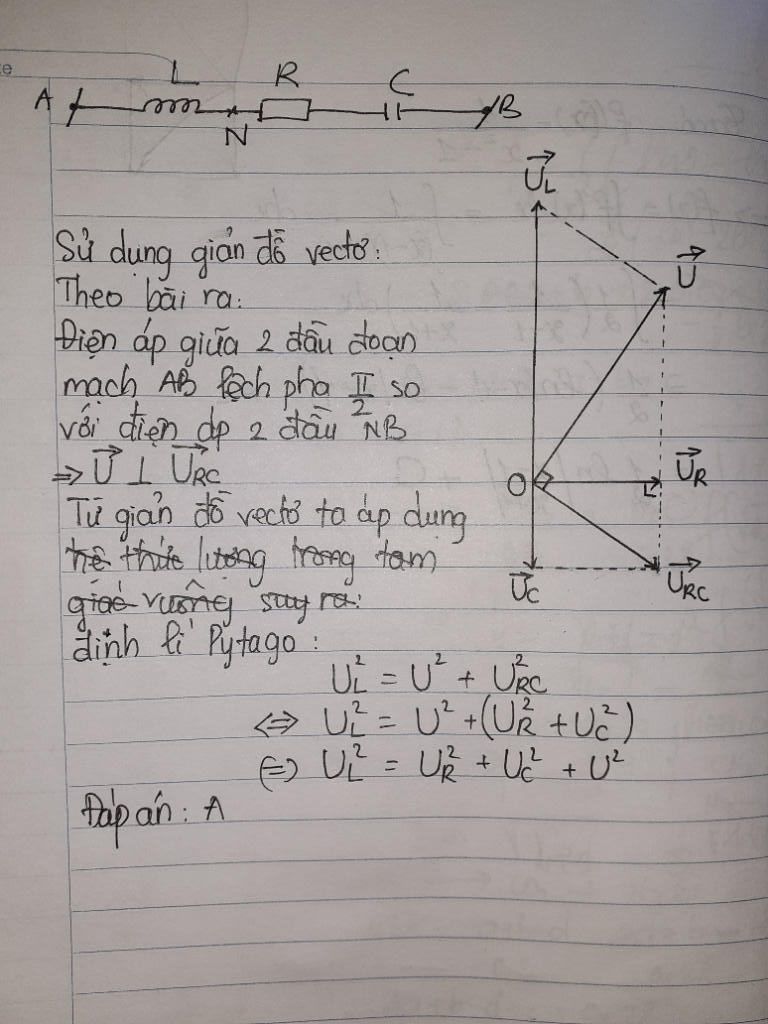 L R C
A N B
Sử dụng giản đồ vectơ:
Theo bài ra:
Điện áp giữa 2 đầu đoạn
mạch AB lệch pha π/2 so
với điện áp 2 đầu NB
=> U⃗ ⊥ U⃗RC
Từ giản đồ vectơ ta áp dụng
hệ thức lượng trong tam
giác vuông suy ra:
định lí Pytago:
U_L² = U² + U_RC²
<=> U_L² = U² + (U_R² + U_C²)
<=> U_L² = U_R² + U_C² + U²
Đáp án: A
U⃗L
U⃗
O U⃗R
U⃗C U⃗RC